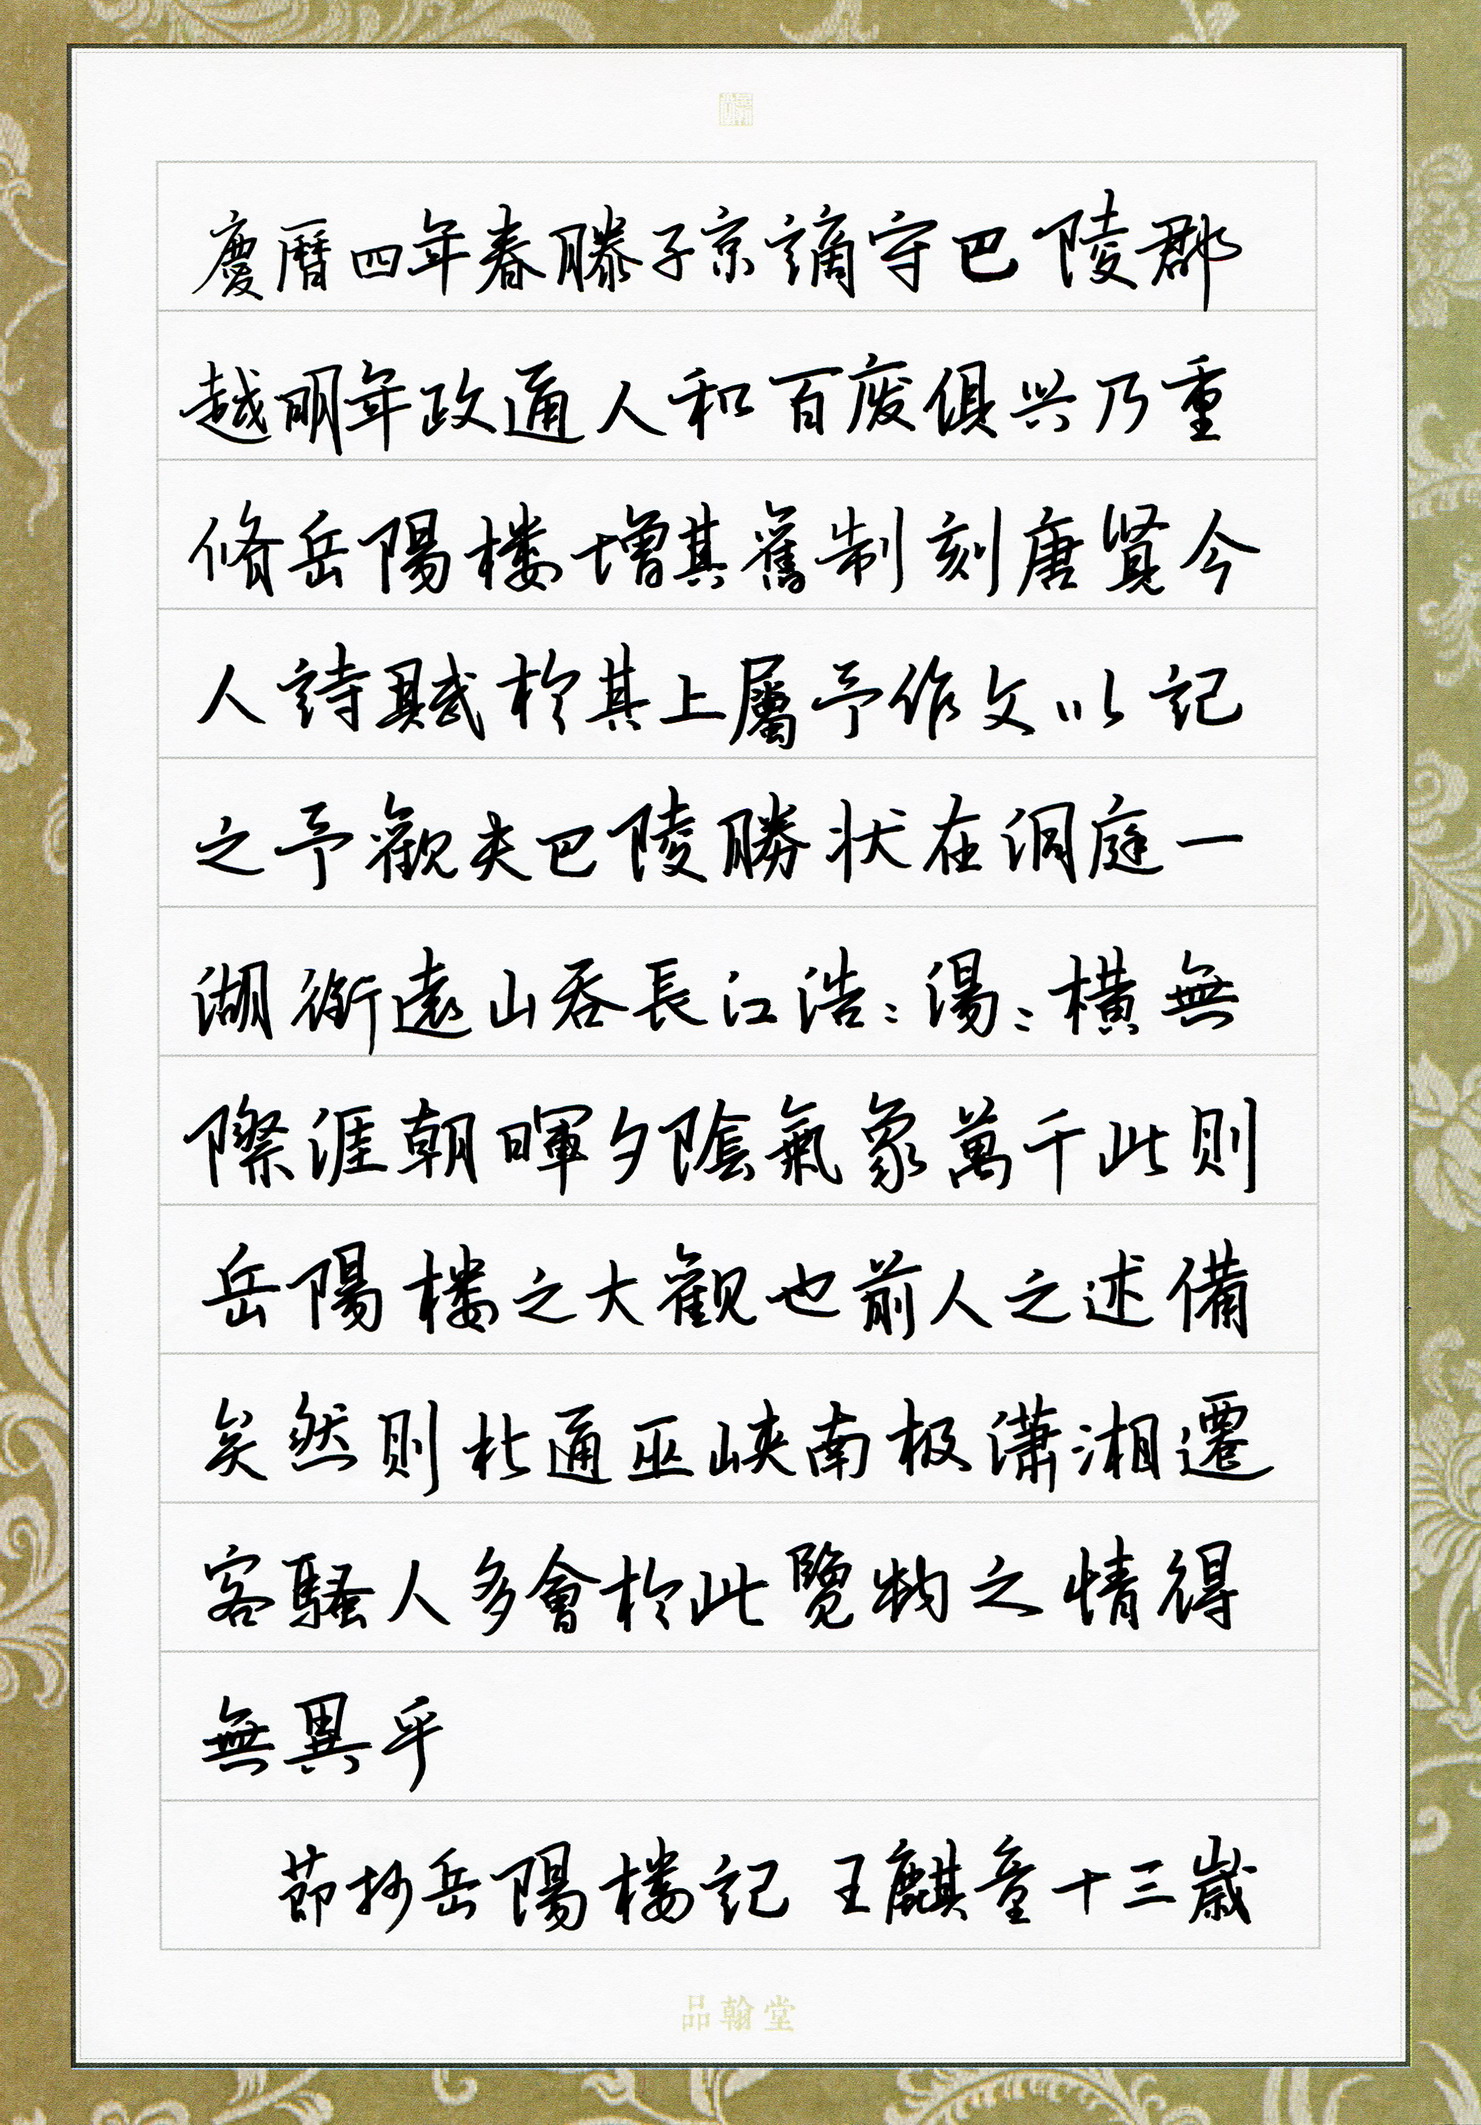 慶曆四年春滕子京謫守巴陵郡
越明年政通人和百废俱兴乃重
脩岳陽楼增其舊制刻唐賢今
人詩賦於其上屬予作文以記
之予觀夫巴陵勝状在洞庭一
湖銜遠山吞長江浩:湯:橫無
際涯朝暉夕陰氣象萬千此則
岳陽楼之大觀也前人之述備
矣然則北通巫峡南极潇湘遷
客騷人多會於此覽物之情得
無異乎
節抄岳陽楼記 王麒童十三歲
品翰堂